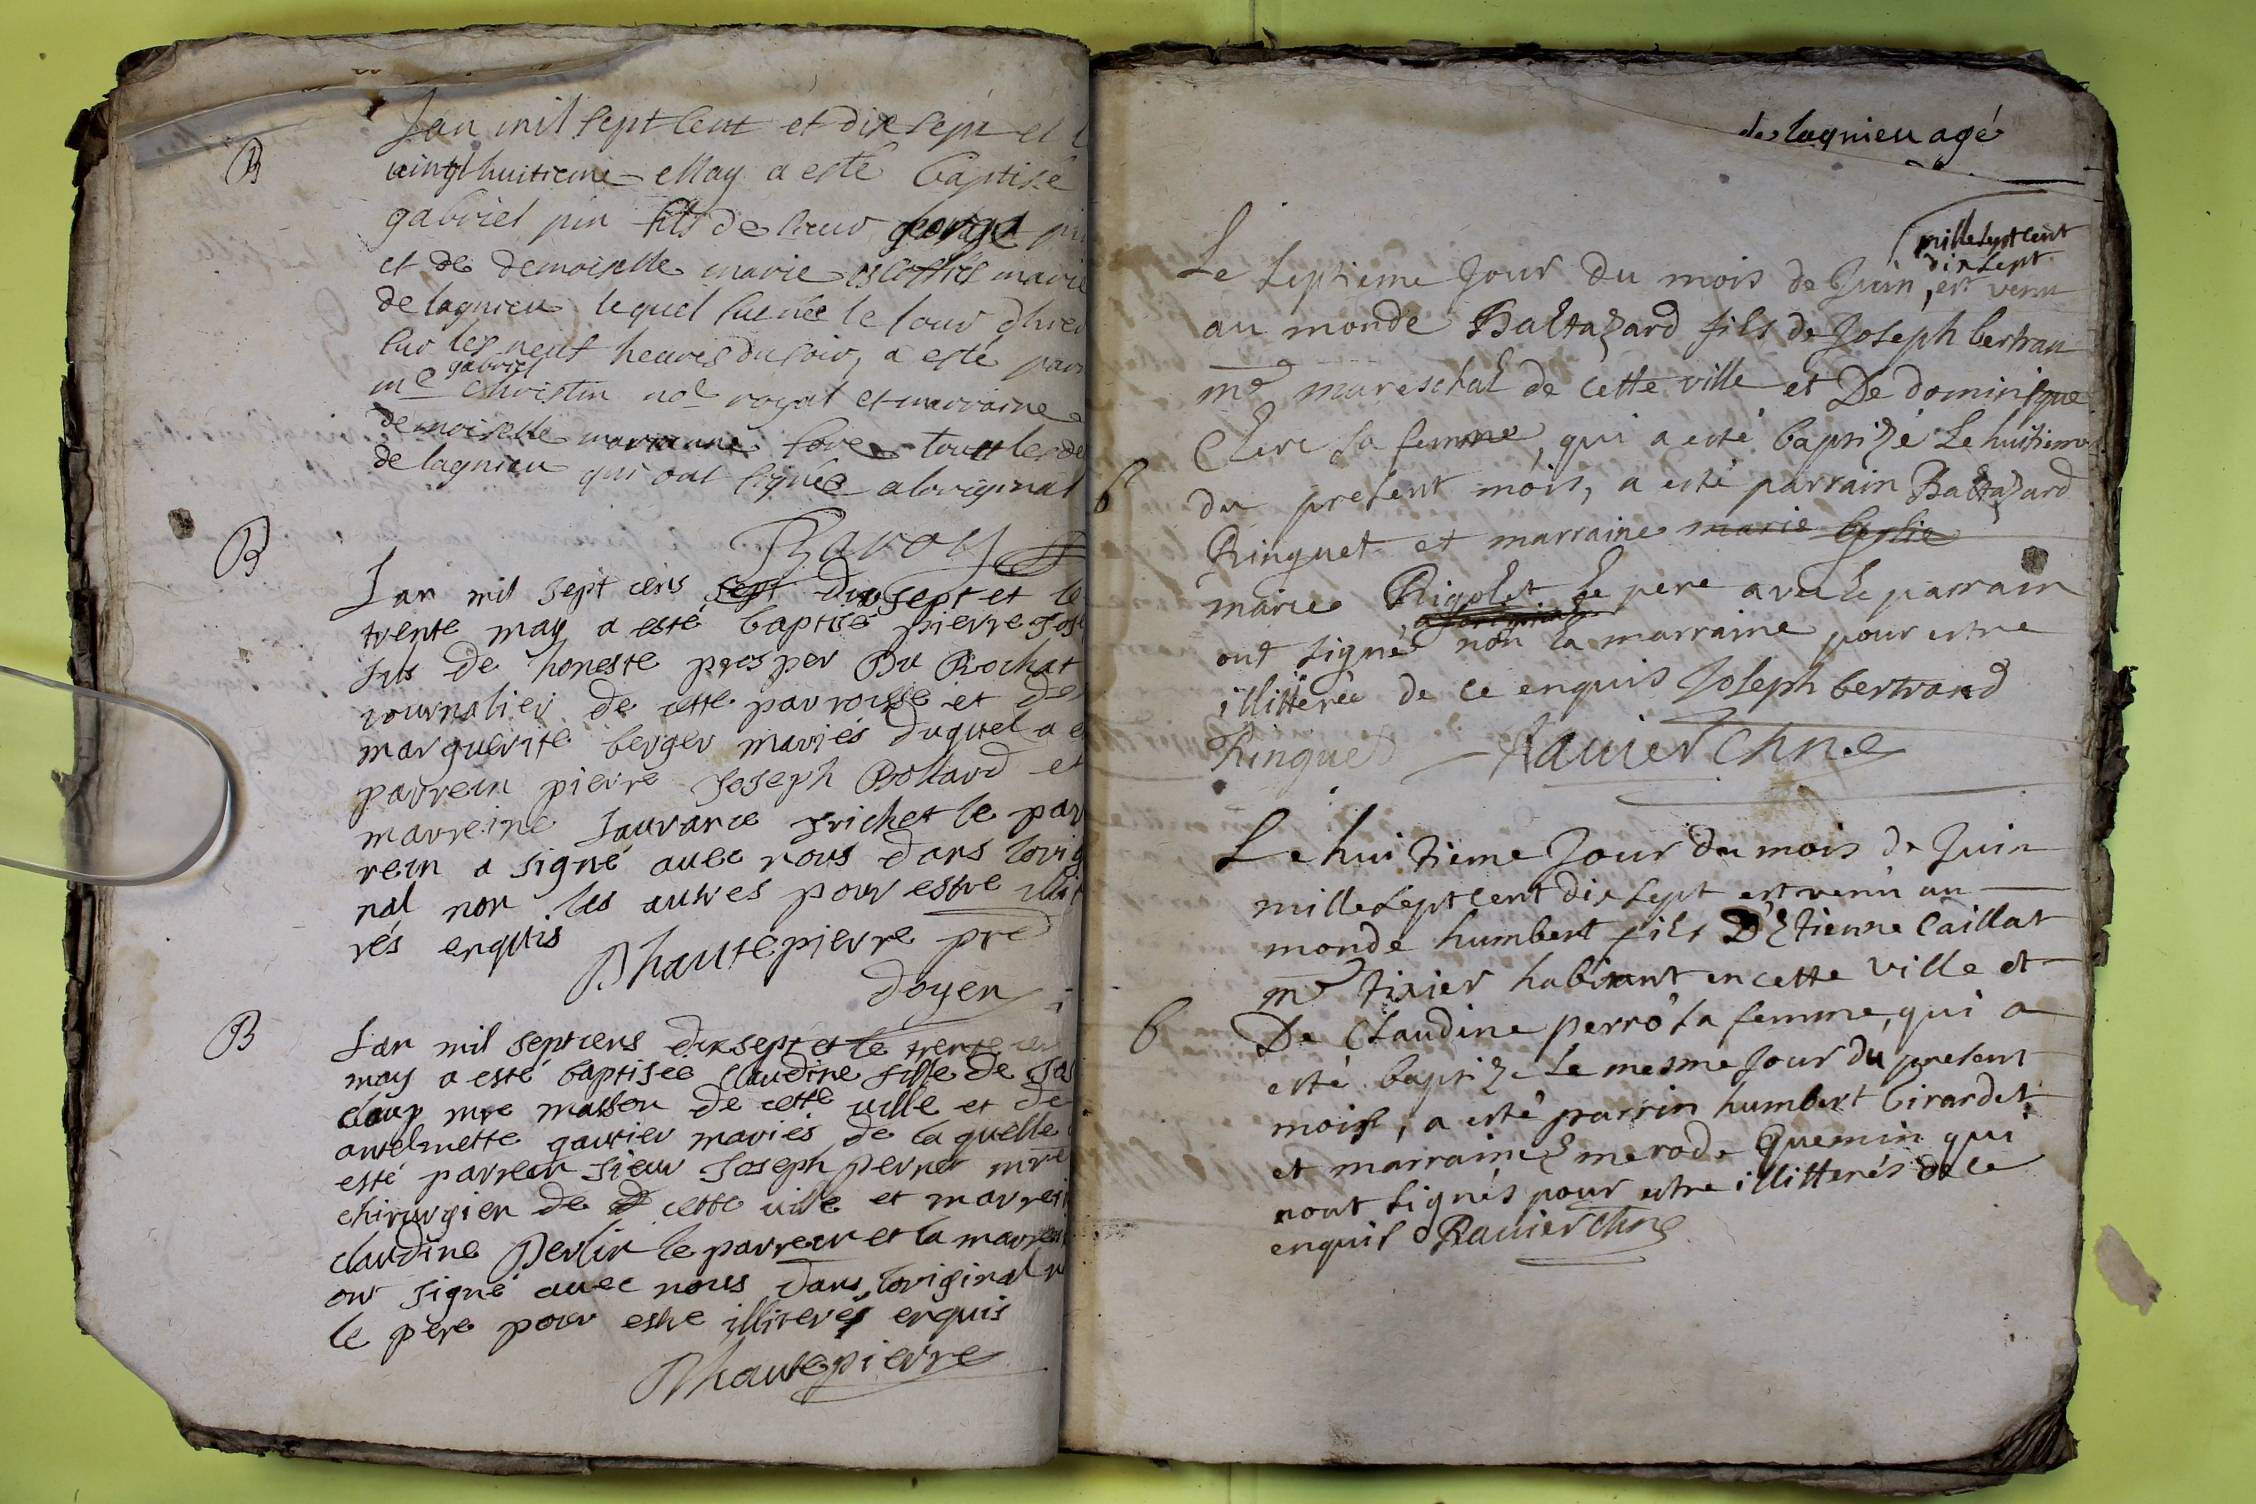 B
Lan mil sept cent et dix sept et l
vingt huitieme May a esté baptisé
gabriel pin fils de sieur george pi
et de demoiselle marie marie
de lagnieu lequel le jour d'hier
sur les neuf heures du soir, a esté parr
me gabriel Christin nore royal et marraine
demoiselle marianne fore tout les de
de lagnieu qui ont signés a loriginal
B
Lan mil sept cens sept dix sept et le
trente may a esté baptisé pierre Jose
fils de honeste prosper Du Rochat
journalier de cette parroisse et de
marguerite berger mariés duquel a e
parrein pierre Joseph Bollard et
marreine Laurance frichet le par
rein a signé avec nous dans lorig
nal non les autres pour estre illit
rés enquis Dhautepierre pre
doyen
B
Lan mil sept cens dixsept et le trente
may a esté baptisee claudine fille de Jos
mre masson de cette ville et de
antelmette gautier mariés de la quelle
esté parrein sieur Joseph perret mre
chirurgien de cette ville et marrei
claudine perlin le parrein et la marrei
ont signé avec nous dans loriginal n
le pere pour estre illiterés enquis
Dhautepierre
de lagnieu agé
mille sept cent
dix sept
Le septieme Jour du mois de Juin, est venu
au monde Baltazard fils de Joseph bertran
me mareschal de cette ville et De dominique
Clerc sa femme, qui a esté baptizé Le huitieme
b
du present mois, a esté parrain Baltazard
Ringuet et marraine marie
marie Rigolet Le pere avec le parrain
a loriginal
ont signé non la marraine pour estre
illitterée de ce enquis Joseph bertrand
Ringuet Ravier Chne
Le huitieme Jour du mois de Juin
mille sept cent dix sept est venu au
monde humbert fils D'Etienne Caillat
me tixier habitant en cette ville et
b
De Claudine perro sa femme, qui a
esté baptizé Le mesme Jour du present
mois, a esté parrin humbert Girardet
et marraine Emerode Quemin qui
nont signés pour estre illitterés de ce
enquis Ravier Chne